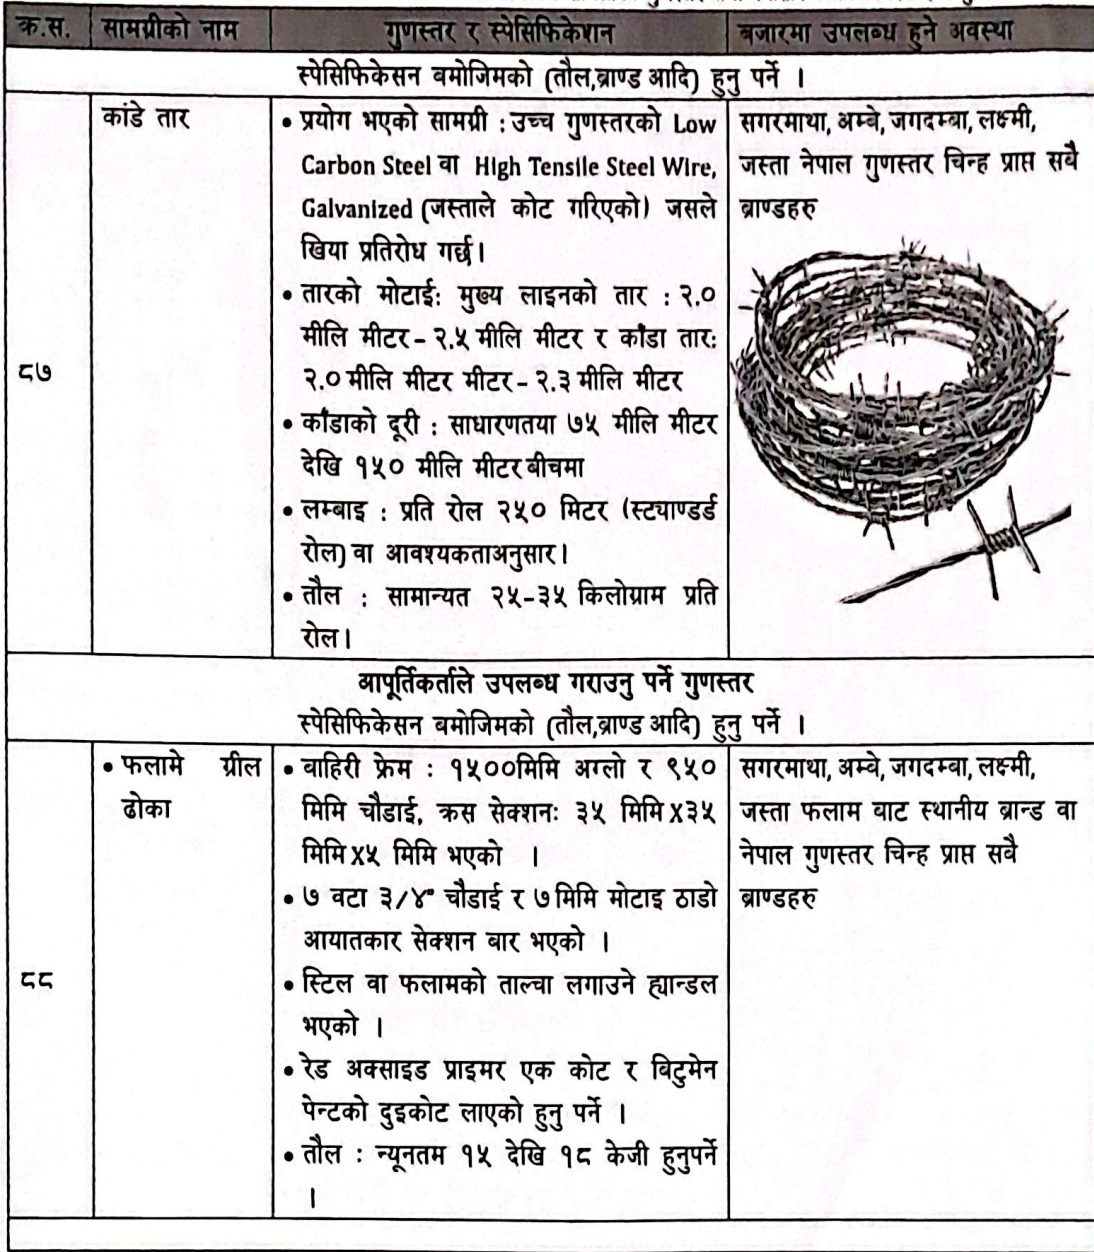 क्र.स.
सामग्रीको नाम
गुणस्तर र स्पेसिफिकेशन
बजारमा उपलब्ध हुने अवस्था
स्पेसिफिकेसन बमोजिमको (तौल,ब्राण्ड आदि) हुनु पर्ने ।
८७
कांडे तार
• प्रयोग भएको सामग्री : उच्च गुणस्तरको Low
Carbon Steel वा High Tensile Steel Wire,
Galvanized (जस्ताले कोट गरिएको) जसले
खिया प्रतिरोध गर्छ।
• तारको मोटाई: मुख्य लाइनको तार : २.०
मीलि मीटर - २.५ मीलि मीटर र काँडा तार:
२.० मीलि मीटर मीटर - २.३ मीलि मीटर
• काँडाको दूरी : साधारणतया ७५ मीलि मीटर
देखि १५० मीलि मीटर बीचमा
• लम्बाइ : प्रति रोल २५० मिटर (स्ट्याण्डर्ड
रोल) वा आवश्यकताअनुसार।
• तौल : सामान्यत २५-३५ किलोग्राम प्रति
रोल।
सगरमाथा, अम्बे, जगदम्बा, लक्ष्मी,
जस्ता नेपाल गुणस्तर चिन्ह प्राप्त सबै
ब्राण्डहरु
आपूर्तिकर्ताले उपलब्ध गराउनु पर्ने गुणस्तर
स्पेसिफिकेसन बमोजिमको (तौल,ब्राण्ड आदि) हुनु पर्ने ।
८८
• फलामे ग्रील
ढोका
• वाहिरी फ्रेम : १५००मिमि अग्लो र ९५०
मिमि चौडाई, क्रस सेक्शनः ३५ मिमि X३५
मिमि X५ मिमि भएको ।
• ७ वटा ३/४" चौडाई र ७ मिमि मोटाइ ठाडो
आयातकार सेक्शन बार भएको ।
• स्टिल वा फलामको ताल्चा लगाउने ह्यान्डल
भएको ।
• रेड अक्साइड प्राइमर एक कोट र विटुमेन
पेन्टको दुइकोट लाएको हुनु पर्ने ।
• तौल : न्यूनतम १५ देखि १८ केजी हुनुपर्ने
।
सगरमाथा, अम्बे, जगदम्वा, लक्ष्मी,
जस्ता फलाम बाट स्थानीय ब्रान्ड वा
नेपाल गुणस्तर चिन्ह प्राप्त सबै
ब्राण्डहरु